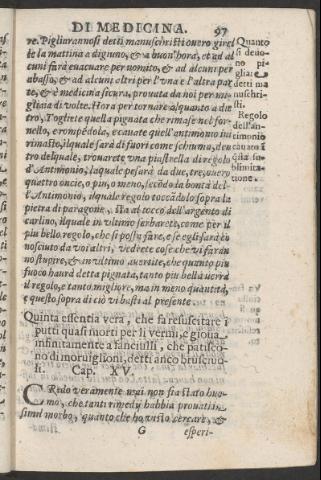 DI MEDICINA. 97
re. Pigliarannosi detti manuschristi overo girel
le la mattina a digiuno, & a buon'hora, et ad al
cuni farà evacuare per vomito, & ad alcuni per
abasso, & ad alcuni altri per l'una e l'altra par
te, & è medicina sicura, provata da noi per mi-
gliaia di volte. Hora per tornare alquanto a die
tro, Togliete quella pignata che rimase nel for-
nello, e rompédola, e cavate quell'antimonio ivi
rimasto, ilquale sarà di fuori come schiuma, den
tro delquale, trovarete una piastrella di regolo
d'Antimonio, laquale pesarà da due, tre, overo
quattro oncie, o piu, o meno, secódo la bontà del-
l'Antimonio, ilquale regolo toccádolo sopra la
pietra di paragone, sta al tocco dell'argento di
carlino, ilquale in ultimo serbarete, come per il
piu bello regolo, che si possa fare, e se egli sarà co
nosciuto da voi altri, vedrete cose che vi farán
no stupire, & in ultimo avertite, che quanto piu
fuoco haurà detta pignata, tanto piu bella verrà
il regolo, e tanto migliore, ma in meno quantità,
e questo sopra di ciò vi basti al presente.
Quanto
si devo-
no pi-
gliar i
detti ma
nuschri-
sti.
Regolo
dell'an-
timonio
cavato i
qsta su-
blimita-
tione.
Quinta essentia vera, che fa resuscitare i
putti quasi morti per li vermi, e giova
infinitamente a fanciulli, che patisco-
no di moruiglioni, detti anco brusciuo-
li. Cap. XV.
CRedo veramente mai non sia stato huo-
mo, che tanti rimedij habbia provati in
simil morbo, quanto che hò visto cercare, &
G esperi-